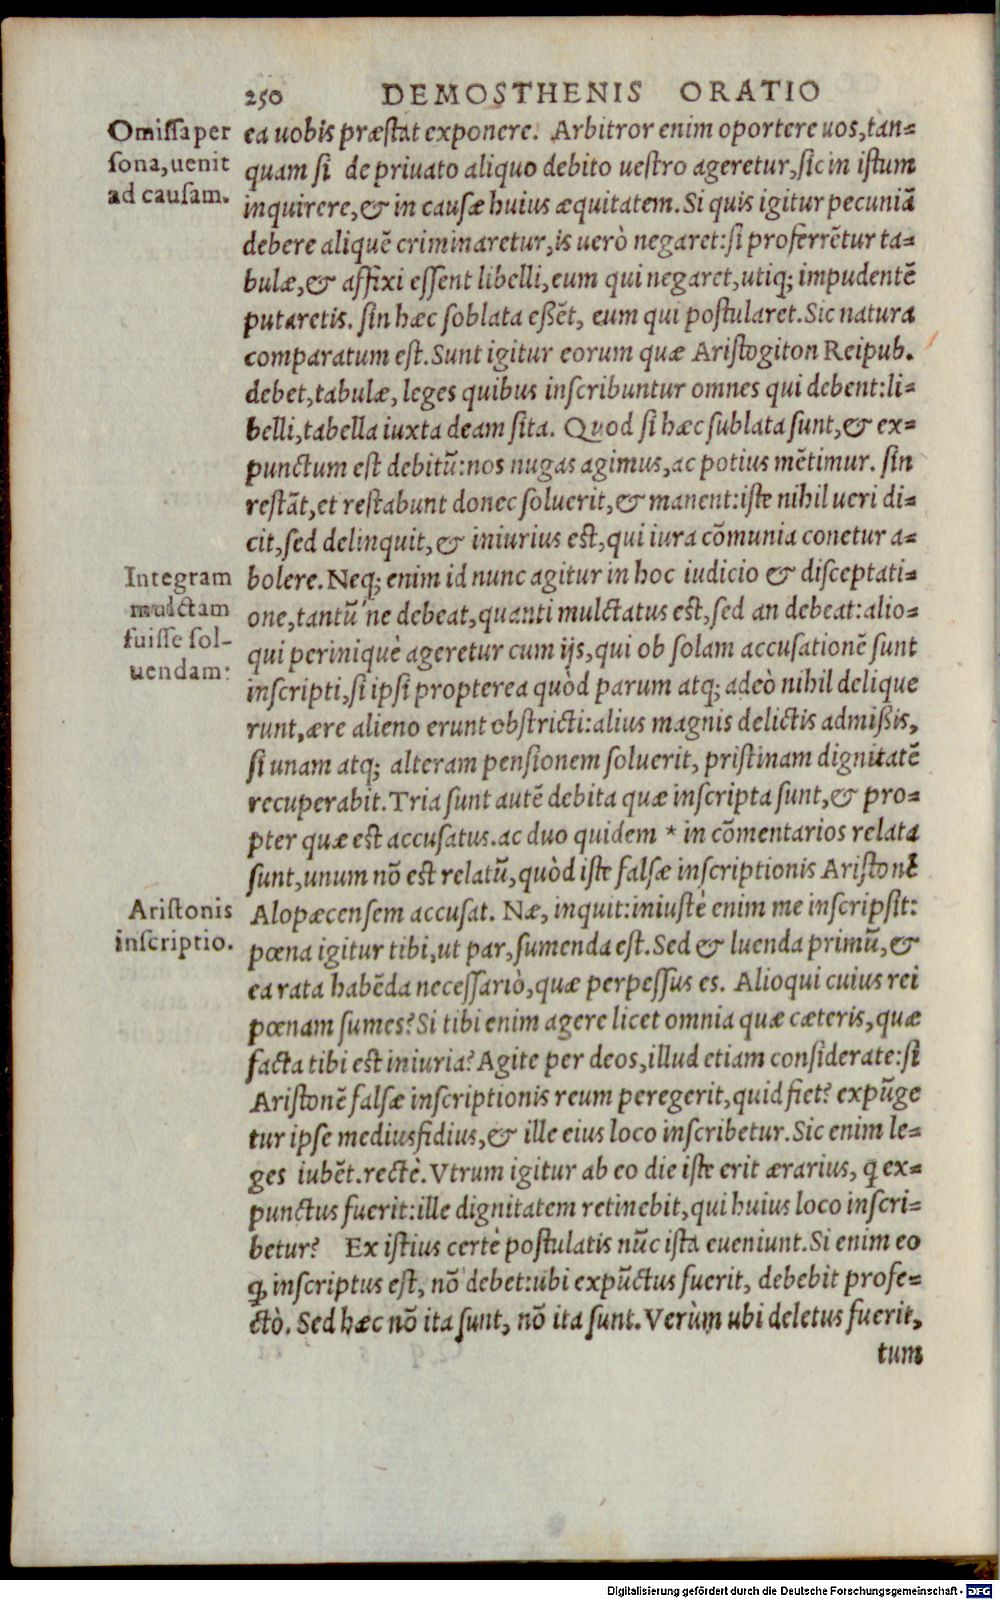 250 DEMOSTHENIS ORATIO
Omissa per
sona, uenit
ad causam.
ea uobis præstat exponere. Arbitror enim oportere uos, tan=
quam si de priuato aliquo debito uestro ageretur, sic in istum
inquirere, & in causæ huius æquitatem. Si quis igitur pecuniã
debere aliquẽ criminaretur, is uerò negaret: si proferrẽtur ta=
bulæ, & affixi essent libelli, eum qui negaret, utiq; impudentẽ
putaretis. sin hæc soblata eßẽt, eum qui postularet. Sic natura
comparatum est. Sunt igitur eorum quæ Aristogiton Reipub.
debet, tabulæ, leges quibus inscribuntur omnes qui debent: li=
belli, tabella iuxta deam sita. Quod si hæc sublata sunt, & ex=
punctum est debitũ: nos nugas agimus, ac potius mẽtimur. sin
restãt, et restabunt donec soluerit, & manent: iste nihil ueri di=
cit, sed delinquit, & iniurius est, qui iura cõmunia conetur a=
Integram
mulctam
fuisse sol-
uendam:
bolere. Neq; enim id nunc agitur in hoc iudicio & disceptati=
one, tantũ ne debeat, quanti mulctatus est, sed an debeat: alio=
qui periniquè ageretur cum ijs, qui ob solam accusationẽ sunt
inscripti, si ipsi propterea quòd parum atq; adeò nihil delique
runt, ære alieno erunt obstricti: alius magnis delictis admißis,
si unam atq; alteram pensionem soluerit, pristinam dignitatẽ
recuperabit. Tria sunt autẽ debita quæ inscripta sunt, & pro=
pter quæ est accusatus. ac duo quidem * in cõmentarios relata
sunt, unum nõ est relatũ, quòd iste falsæ inscriptionis Aristonẽ
Aristonis
inscriptio.
Alopæcensem accusat. Næ, inquit: iniustè enim me inscripsit:
pœna igitur tibi, ut par, sumenda est. Sed & luenda primũ, &
ea rata habẽda necessariò, quæ perpessus es. Alioqui cuius rei
pœnam sumes? Si tibi enim agere licet omnia quæ cæteris, quæ
facta tibi est iniuria? Agite per deos, illud etiam considerate: si
Aristonẽ falsæ inscriptionis reum peregerit, quid fiet? expũge
tur ipse mediusfidius, & ille eius loco inscribetur. Sic enim le=
ges iubẽt. rectè. Vtrum igitur ab eo die iste erit ærarius, ꝗ ex=
punctus fuerit: ille dignitatem retinebit, qui huius loco inscri=
betur? Ex istius certè postulatis nũc ista eueniunt. Si enim eo
ꝗ inscriptus est, nõ debet: ubi expũctus fuerit, debebit profe=
ctò. Sed hæc nõ ita sunt, nõ ita sunt. Verùm ubi deletus fuerit,
tum
Digitalisierung gefördert durch die Deutsche Forschungsgemeinschaft - DFG